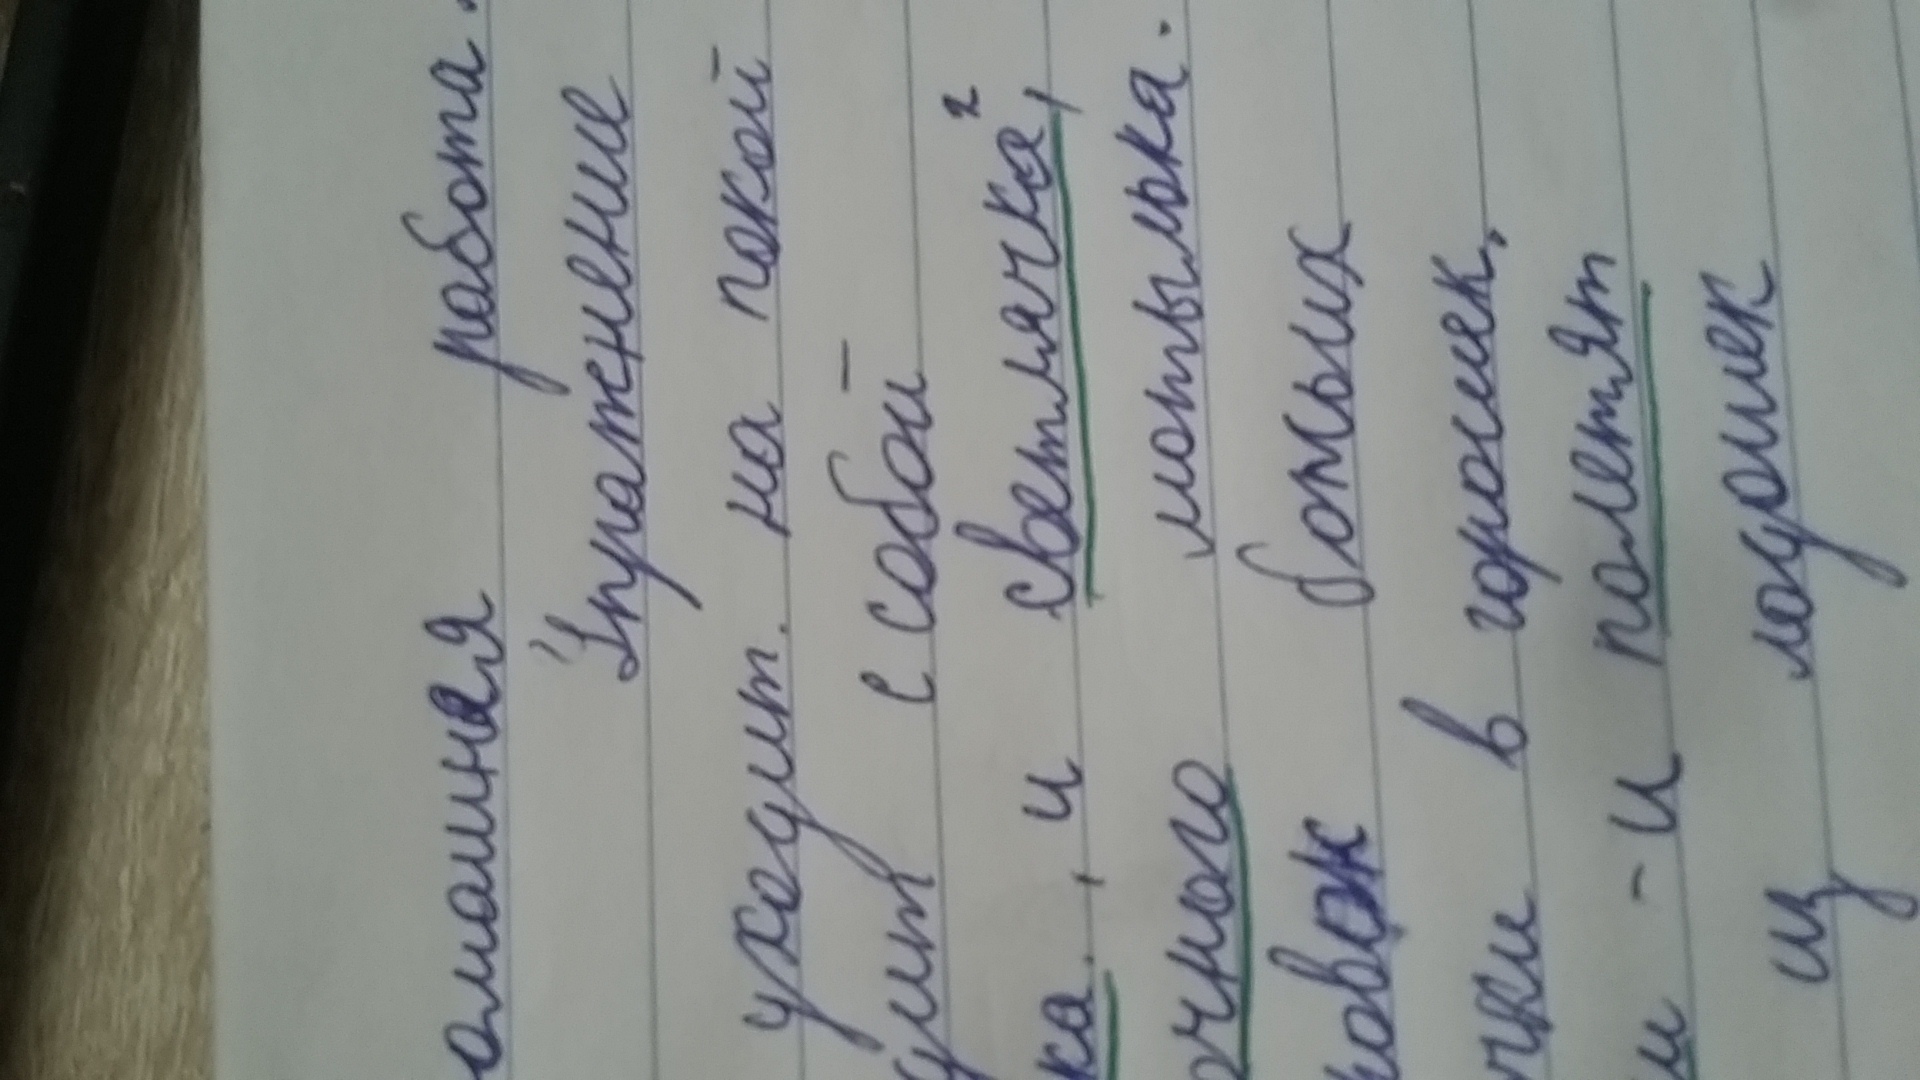 омашняя работа.
Упражнение
уходит. на покой
дит с собой
ка, и светлячка,²
очного мотылька.
ковок божьих
чки в горошек,
и - и полетят
из ладошек